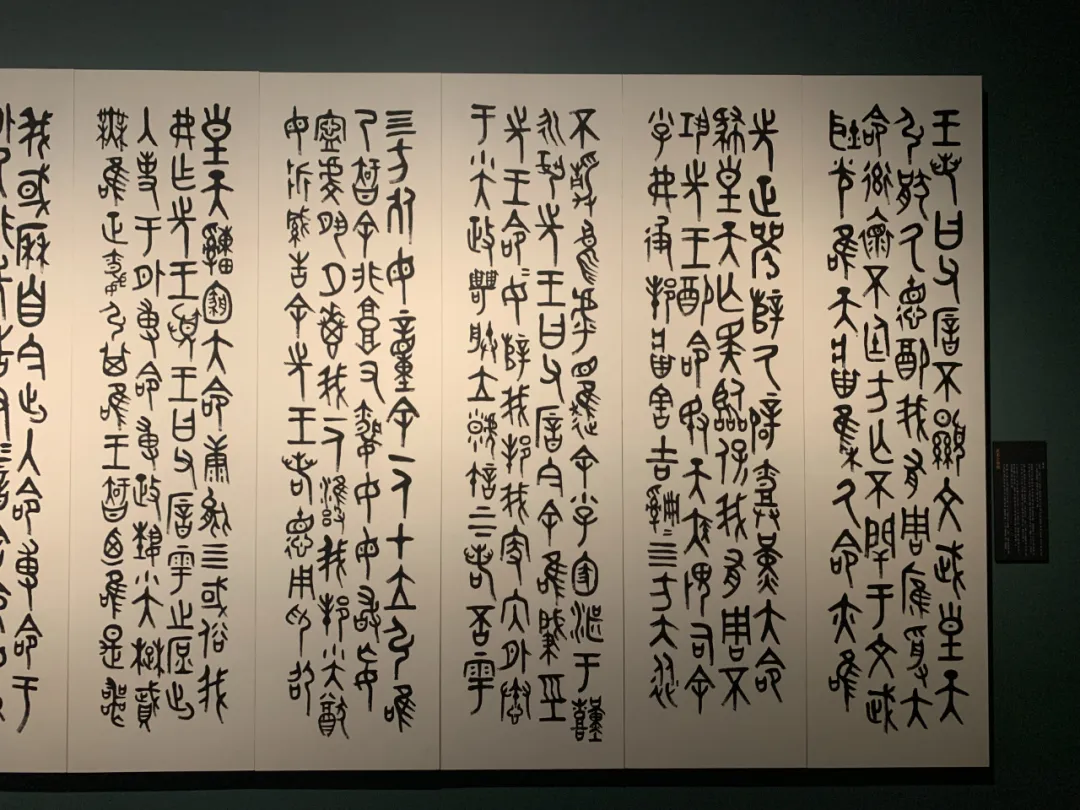 王若曰父厝不顯文武皇天
引猒氒德配我有周膺受大
命率懷不廷方亡不閈于文武
耿光唯天將集氒命亦唯
先正辥氒辟堇大命
肆皇天亡斁臨保我有周不
巩先王配命敃天疾畏司余
小子弗彶邦將害吉四方大從
不靜烏虖趯余小子圂湛于艱
永巩先王王曰父厝今余唯肇巠
先王命命女辥我邦我家內外惷
于小大政甹朕立虩許上下若否雩
四方死毋童余一人在立引唯
乃智余非庸又昏女毋敢妄
寧虔夙夕惠我一人雝我邦小大猷
毋折緘告余先王若德用卬卲
皇天大命康能四或俗我
弗乍先王憂王曰父厝雩之庶出
入事于外尃命尃政埶小大楚賦
無唯正昏引其唯王智迺唯是喪
我或厤自今出入尃命于